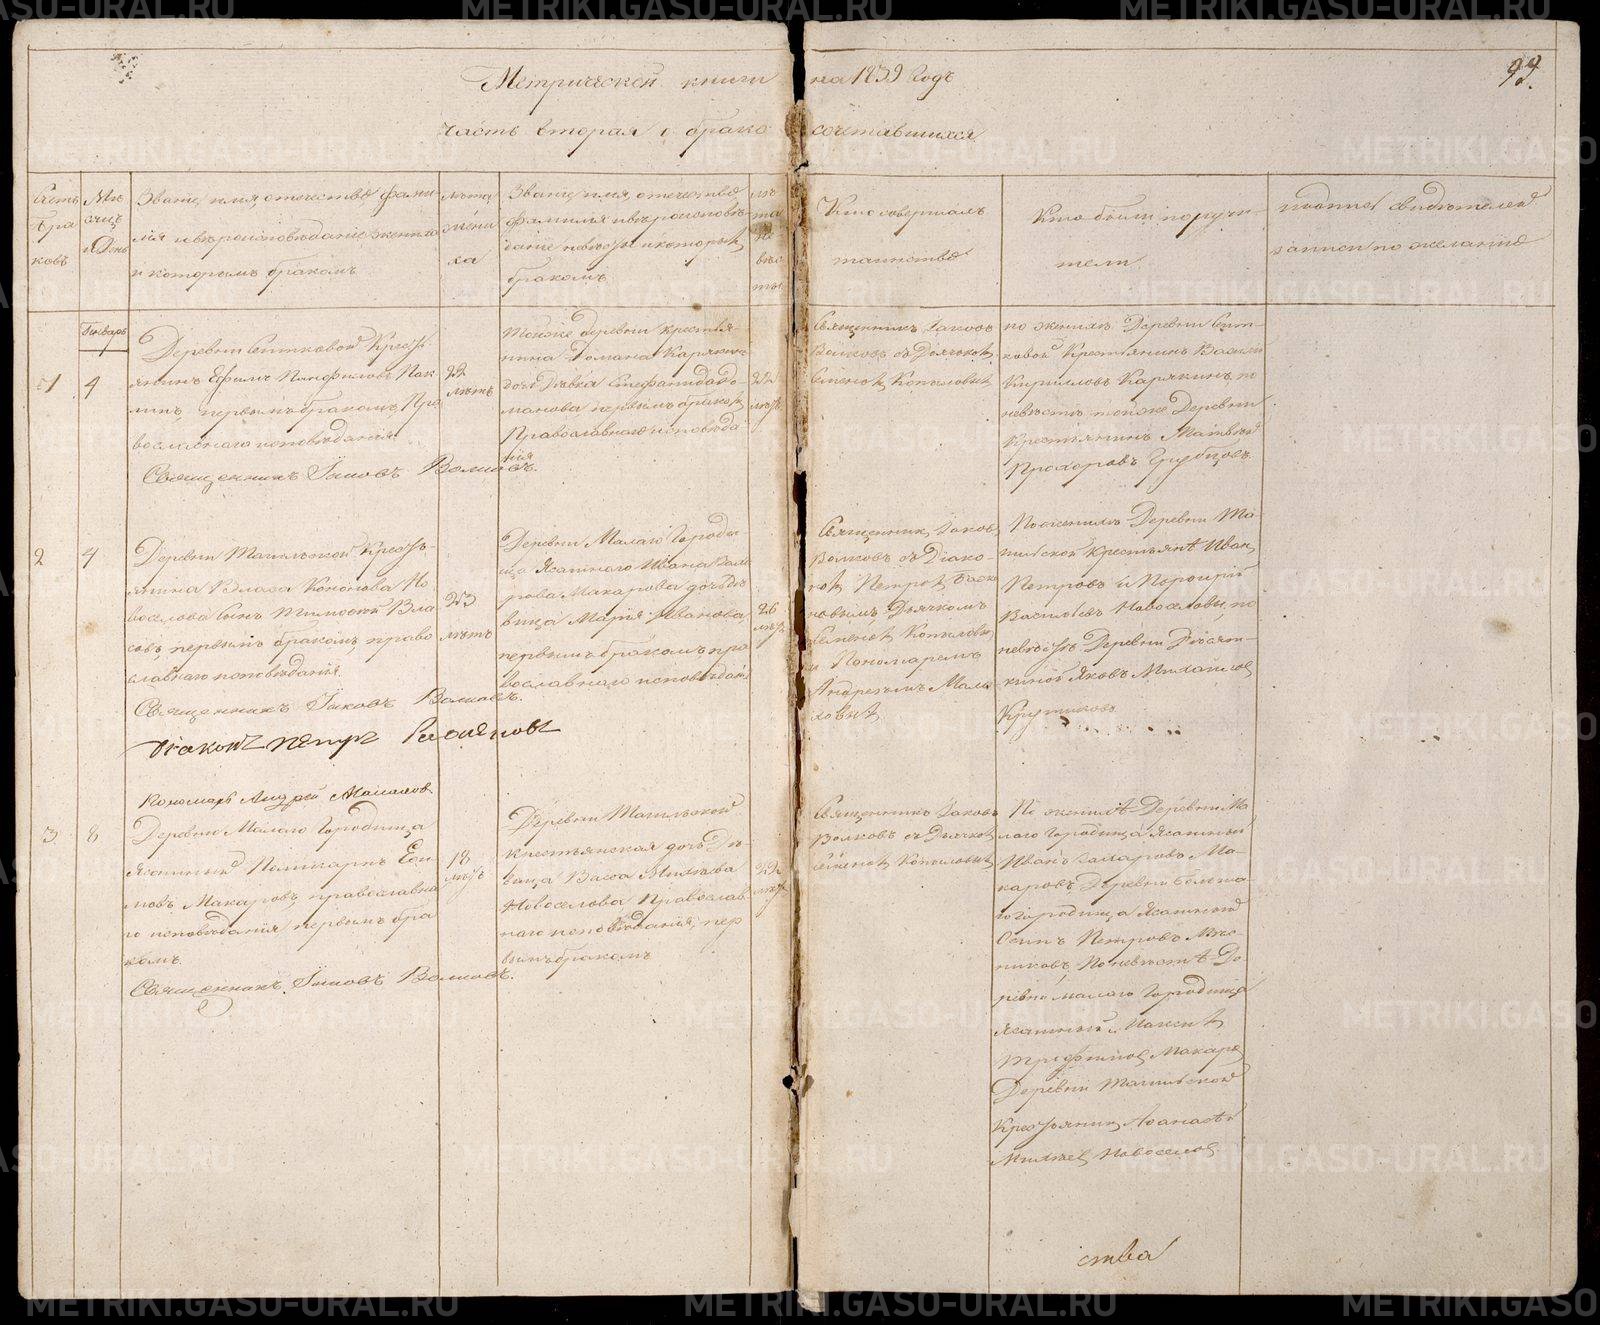 Метрической книги на 1839 Годъ
99.
часть вторая о брако сочетавшихся
Счетъ браковъ
Мѣсяцъ и День
Званіе, имя, отечество, фами-
лія и вѣроисповѣданіе жениха
и которымъ бракомъ
лѣта
жени
ха
Званіе, имя, отечество,
фамилія и вѣроисповѣ-
даніе невѣсты и которымъ
бракомъ
лѣ
та
не
вѣс
ты
Кто совершалъ
таинство
Кто были поручи-
тели
записи по желанію
Генварь
1
4
Деревни Ситковой Кресть
янинъ Ефимъ Панфиловъ
первымъ бракомъ, Пра
вославнаго исповѣданія
Священникъ Іаковъ Волковъ.
22
лѣтъ
тойже деревни крестья
нина Домана Карякина
дочь Дѣвка Стефанида До
манова первымъ бракомъ
Православнаго исповѣда
нія
22
лѣтъ
Священникъ Іаковъ
Волковъ съ Дьячкомъ
Семеномъ Копыловымъ
по женихѣ Деревни Сит-
ковой Крестьянинъ Василій
Кириловъ Карякинъ, по
невѣстѣ тойже Деревни
Крестьянинъ Матвей
Прохоровъ
2
4
Деревни Тагильской Кресть-
янина Власа Кононова Но
воселова сынъ Тимофей Вла
совъ, первымъ бракомъ, право
славнаго исповѣданія
Священникъ Іаковъ Волковъ.
Діаконъ Петръ
Пономарь Андрей Малаховъ
23
лѣтъ
Деревни Малаго Городи-
ща Ясашнаго Ивана
Макарова дочь дѣ
вица Марія Иванова
первымъ бракомъ, пра
вославнаго исповѣданія
26
лѣтъ
Священникъ Іаковъ
Волковъ съ Діако-
номъ Петромъ
Дьячкомъ
Семеномъ Копыловымъ
и Пономаремъ
Андреемъ Мала
ховымъ
По женихѣ Деревни Та-
гильской крестьяне Иванъ
Петровъ и Порфирій
Васильевъ Новоселовы, по
невѣстѣ Деревни
Яковъ Михайловъ
Крутиковъ
3
8
Деревни Малаго Городища
Ясашный Поликарпъ Ефи
мовъ Макаровъ православна
го исповѣданія первымъ бра
комъ.
Священникъ Іаковъ Волковъ.
18
лѣтъ
Деревни Тагильской
крестьянская дочь Дѣ
вица Васса Михѣева
Новоселова Православ
наго исповѣданія, пер
вымъ бракомъ
22
лѣтъ
Священникъ Іаковъ
Волковъ съ Дьячкомъ
Семеномъ Копыловымъ
По женихѣ Деревни Ма
лаго Городища Ясашный
Иванъ Захаровъ Ма-
каровъ, Деревни Больша
го Городища Ясашный
Осипъ Петровъ Мѣс-
никовъ, По невѣстѣ Де
ревни малаго Городища
Ясашный
Трифановъ Макаровъ
Деревни Тагильской
Крестьянинъ Афанасій
Михѣевъ Новоселовъ
ства
METRIKI.GASO-URAL.RU